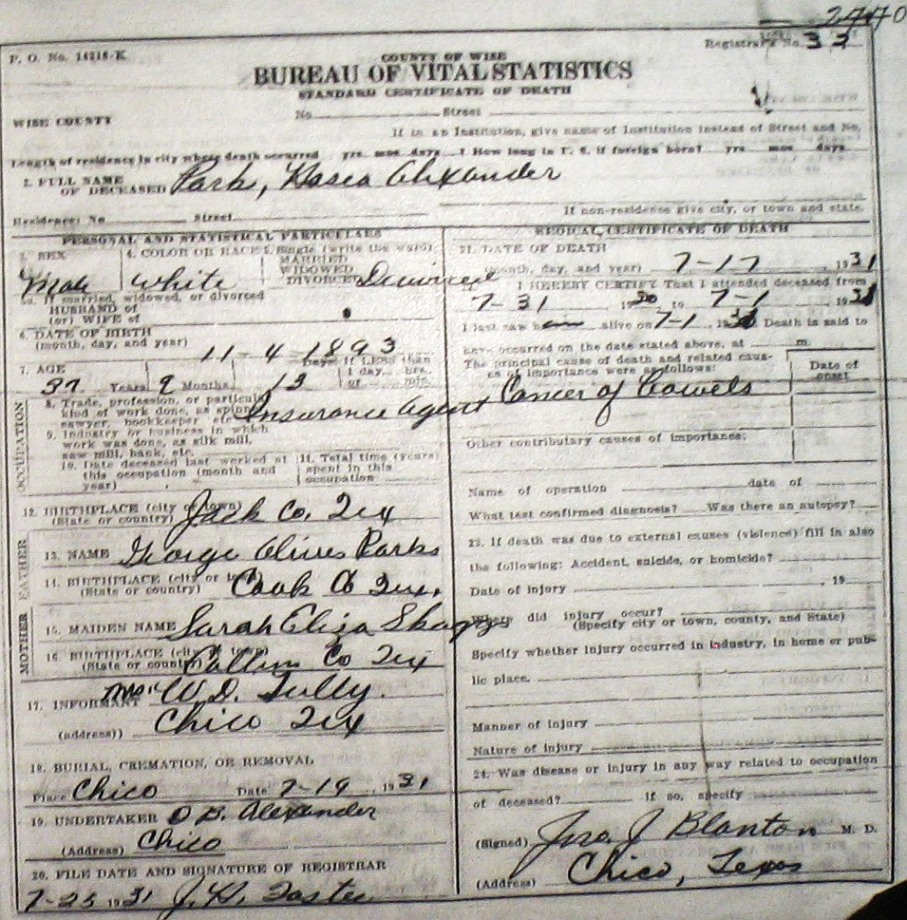 2770
Registrar's No. 32
P. O. No. 14216-K
COUNTY OF WISE
BUREAU OF VITAL STATISTICS
STANDARD CERTIFICATE OF DEATH
No. Street
WISE COUNTY
If in an Institution, give name of Institution instead of Street and No.
Length of residence in city where death occurred yrs mos days ? How long in U. S. if foreign born? yrs mos days
2. FULL NAME
OF DECEASED Park, Hosea Alexander
Residence: No Street
If non-residence give city, or town and state.
PERSONAL AND STATISTICAL PARTICULARS
3. SEX 4. COLOR OR RACE 5. Single (write the word)
MARRIED
WIDOWED
DIVORCED
Male white Divorced
5a. If married, widowed, or divorced
HUSBAND of
(or) WIFE of
6. DATE OF BIRTH
(month, day, and year) 11-4-1893
7. AGE Days If LESS than
1 day, hrs.
37 Years 9 Months 13 or min.
OCCUPATION
8. Trade, profession, or particular
kind of work done, as spinner,
sawyer, bookkeeper etc. Insurance agent
9. Industry or business in which
work was done, as silk mill,
saw mill, bank, etc.
10. Date deceased last worked at
this occupation (month and
year)
11. Total time (years)
spent in this
occupation
12. BIRTHPLACE (city or town)
(State or country) Jack Co, Tex
FATHER
13. NAME George Oliver Parks
14. BIRTHPLACE (city or town)
(State or country) Cook Co Tex.
MOTHER
15. MAIDEN NAME Sarah Eliza Skaggs
16. BIRTHPLACE (city or town)
(State or country) Collin Co Tex
17. INFORMANT Mrs. W. D. Tully.
(address) Chico Tex
18. BURIAL, CREMATION, OR REMOVAL
Place Chico Date 7-19, 1931
19. UNDERTAKER O B. Alexander
(Address) Chico
20. FILE DATE AND SIGNATURE OF REGISTRAR
7-25 1931 J. H.
MEDICAL CERTIFICATE OF DEATH
21. DATE OF DEATH
(month, day, and year) 7-17 1931
I HEREBY CERTIFY That I attended deceased from
7-31 1930 to 7-1 1931
I last saw alive on 7-1 1931 Death is said to
have occurred on the date stated above, at m.
The principal cause of death and related causes
of importance were as follows:
Date of
onset
Cancer of Bowels
Other contributory causes of importance:
Name of operation date of
What test confirmed diagnosis? Was there an autopsy?
23. If death was due to external causes (violence) fill in also
the following: Accident, suicide, or homicide?
Date of injury , 19
Where did injury occur?
(Specify city or town, county, and State)
Specify whether injury occurred in industry, in home or pub-
lic place.
Manner of injury
Nature of injury
24. Was disease or injury in any way related to occupation
of deceased? If so, specify
(Signed) Jno. J Blanton M. D.
(Address) Chico, Texas